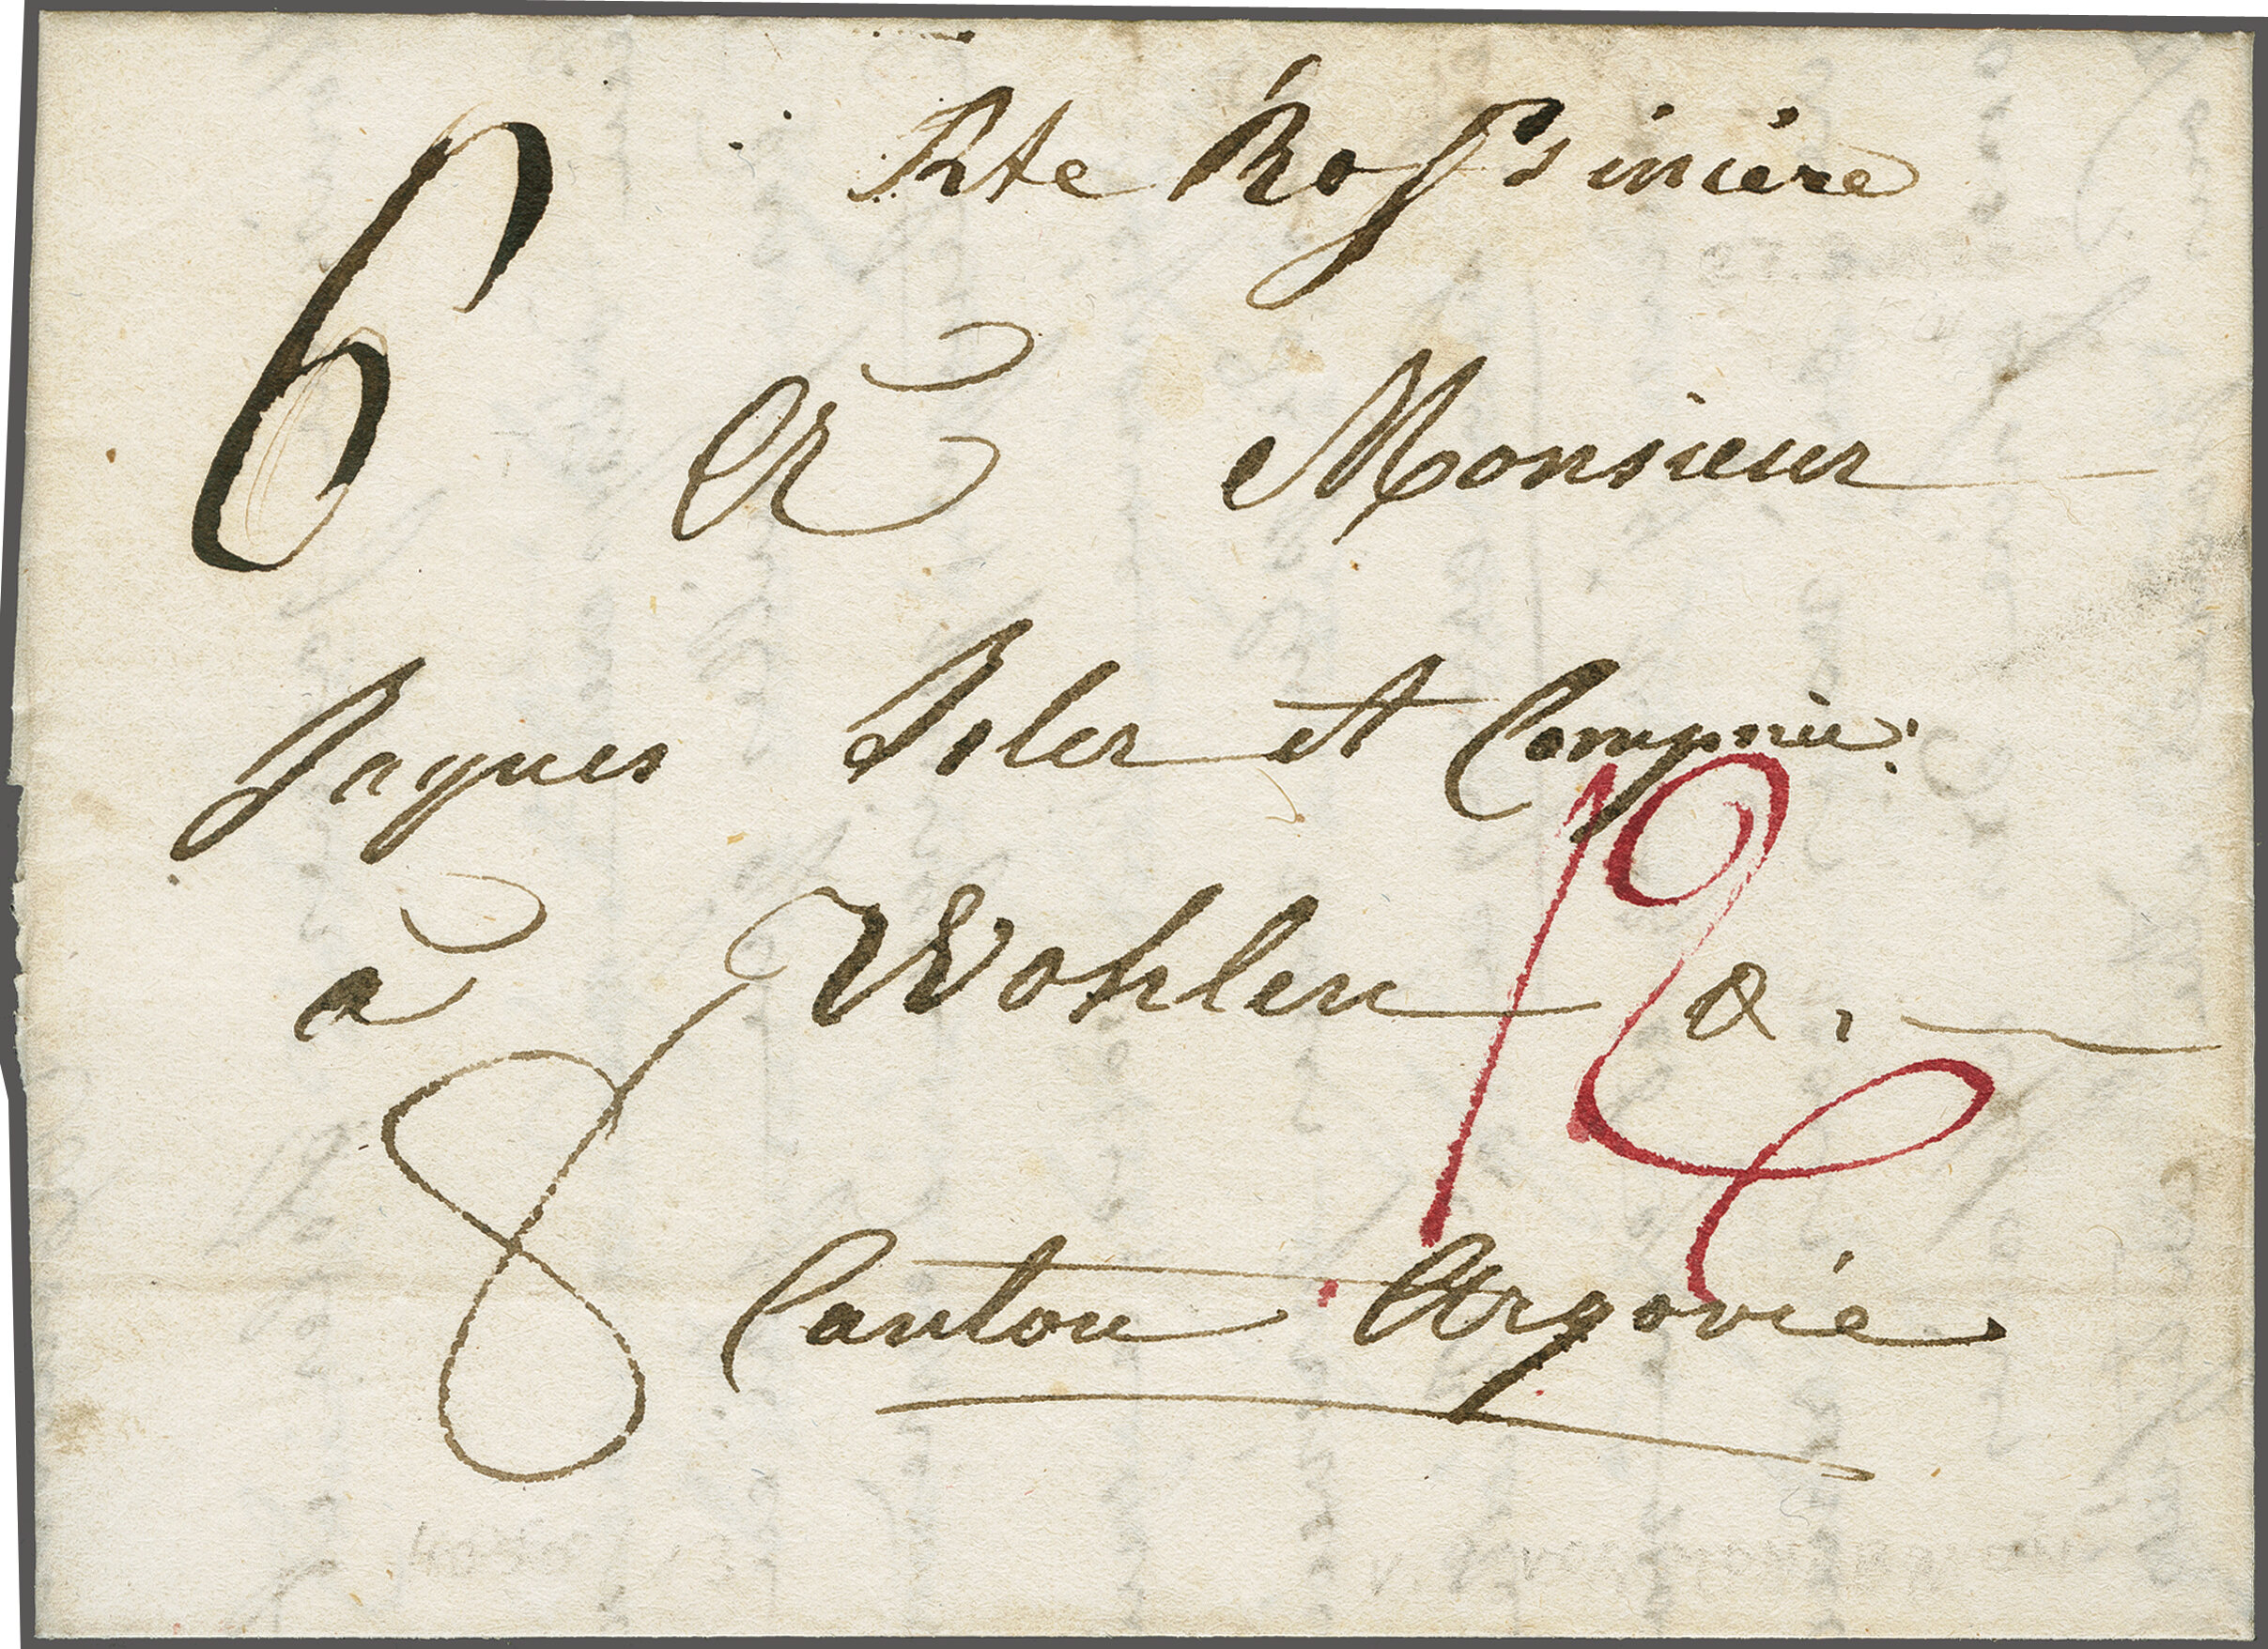 Rte Rossinière
6
A Monsieur
Jaques Isler et Compnie:
12
à Wohlen &.
8
Canton Argovie